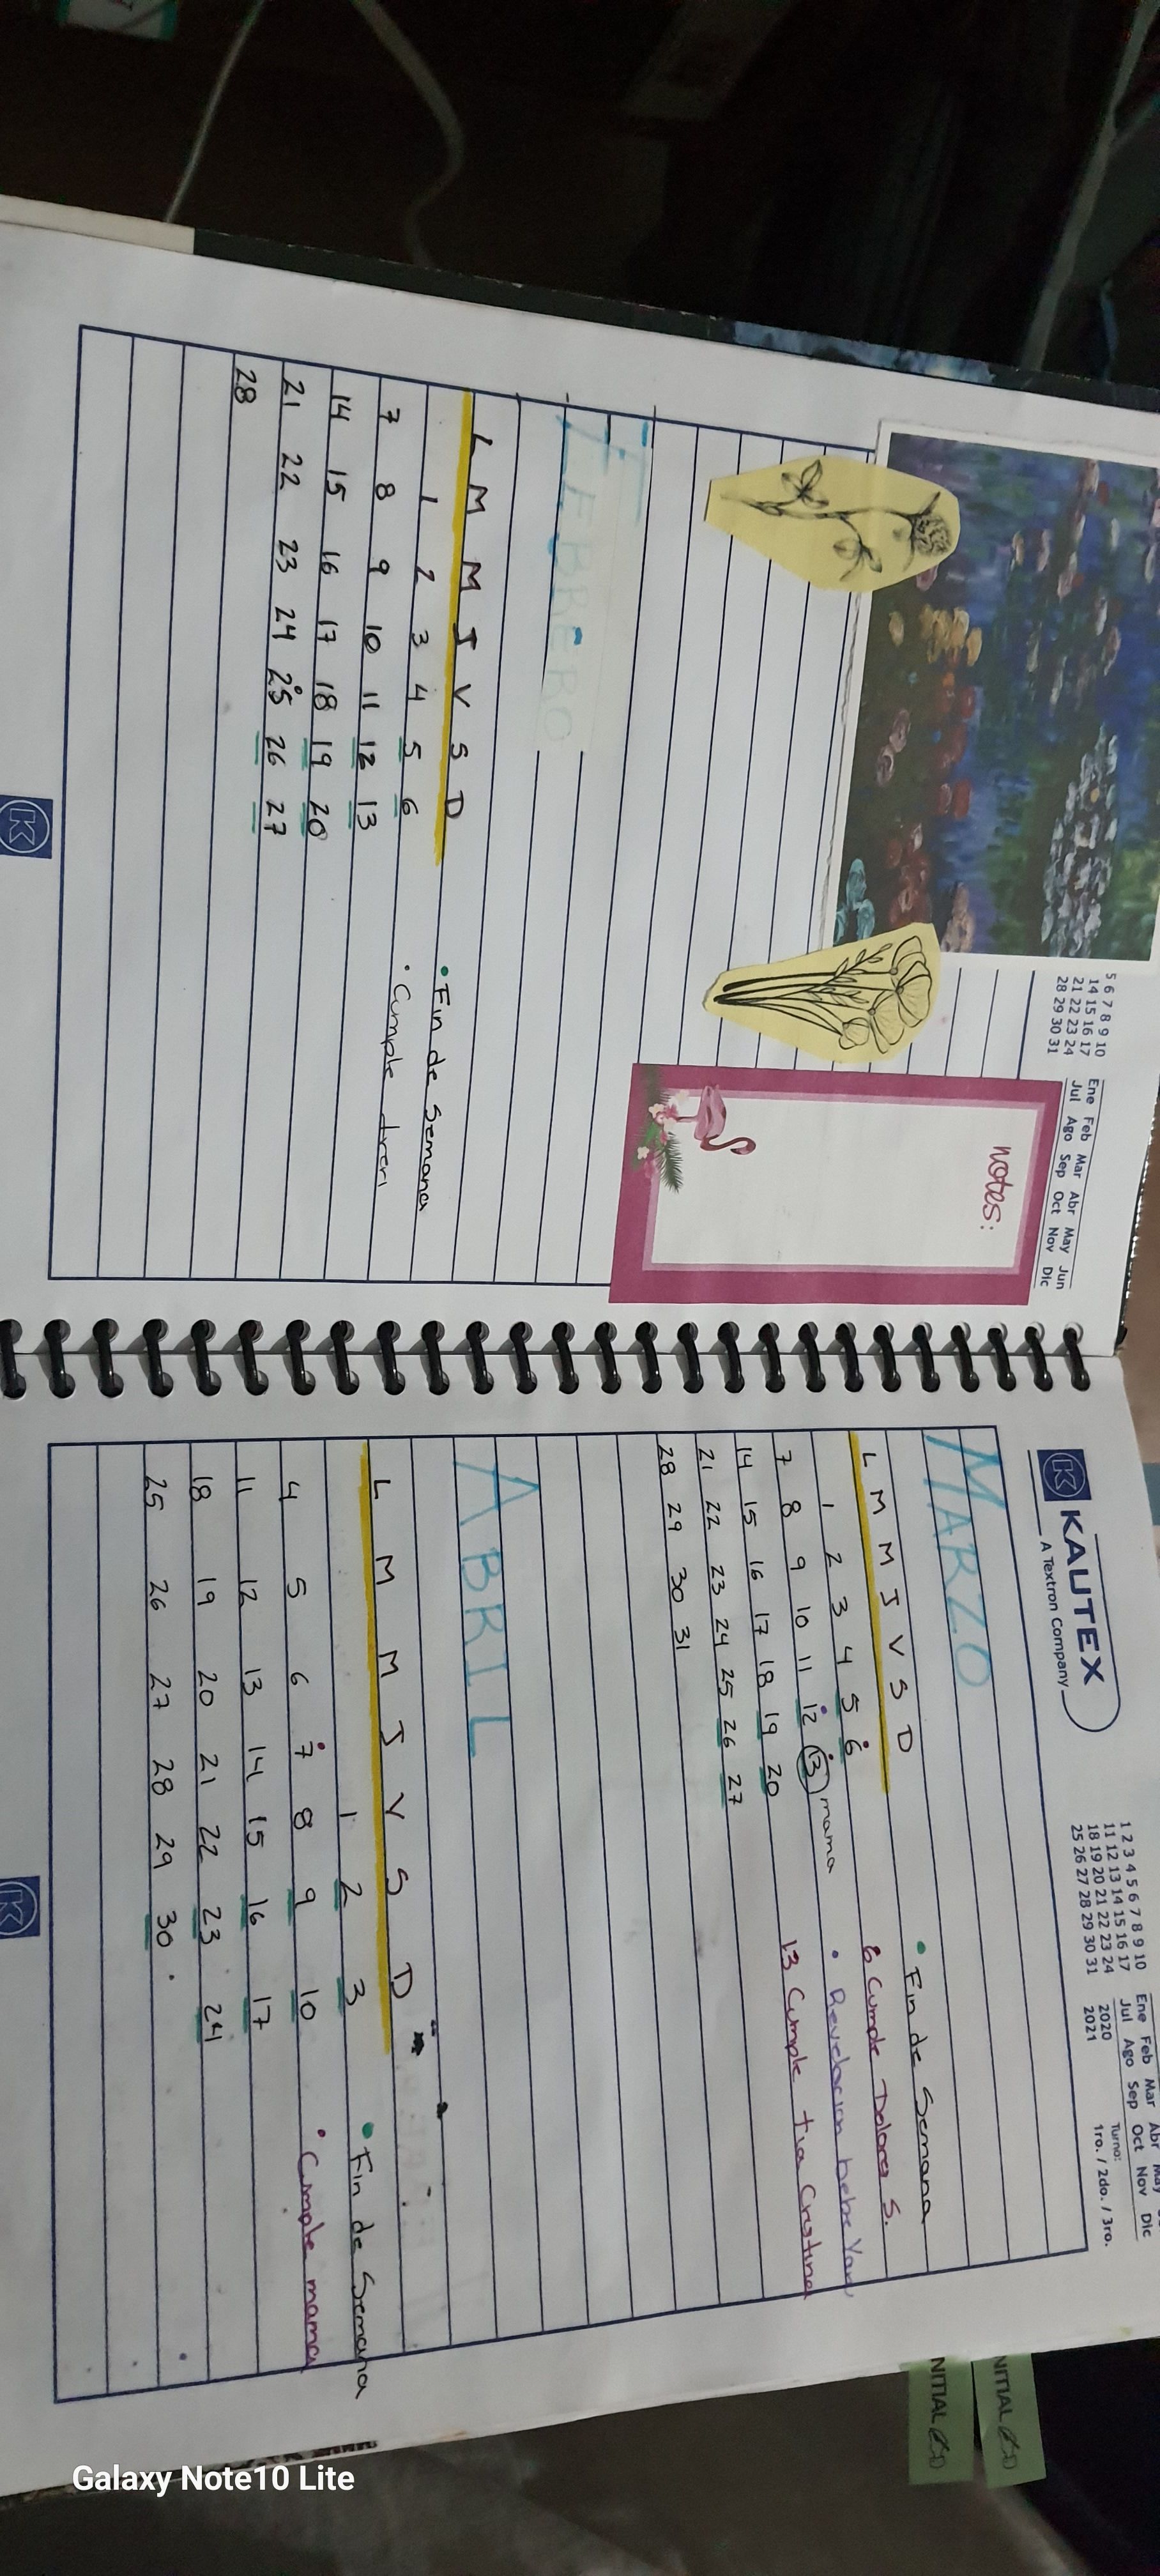 5 6 7 8 9 10
14 15 16 17
21 22 23 24
28 29 30 31
Ene Feb Mar Abr May Jun
Jul Ago Sep Oct Nov Dic
notes:
FEBRERO
L M M J V S D
1 2 3 4 5 6
7 8 9 10 11 12 13
14 15 16 17 18 19 20
21 22 23 24 25 26 27
28
• Fin de Semana
• Cumple
K
K KAUTEX
A Textron Company
1 2 3 4 5 6 7 8 9 10
11 12 13 14 15 16 17
18 19 20 21 22 23 24
25 26 27 28 29 30 31
Ene Feb Mar Abr May
Jul Ago Sep Oct Nov Dic
2020
2021
Turno:
1ro. / 2do. / 3ro.
MARZO
L M M J V S D
1 2 3 4 5 6
7 8 9 10 11 12 13 mama
14 15 16 17 18 19 20
21 22 23 24 25 26 27
28 29 30 31
• Fin de Semana
6 Cumple Dolores S.
• Revelacion bebe Yari
13 Cumple tia Cristina
ABRIL
L M M J V S D
1 2 3
4 5 6 7 8 9 10
11 12 13 14 15 16 17
18 19 20 21 22 23 24
25 26 27 28 29 30
• Fin de Semana
• Cumple mama
K
NITIAL
NITIAL
Galaxy Note10 Lite